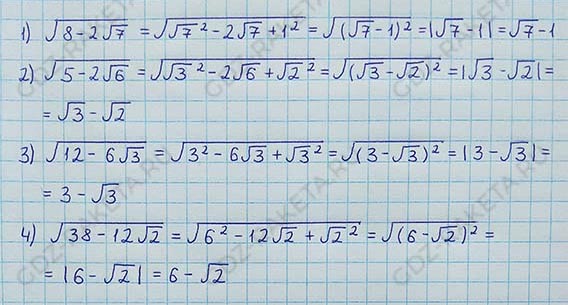 1) √(8-2√7) = √(√7² - 2√7 + 1²) = √((√7-1)²) = |√7-1| = √7-1
2) √(5-2√6) = √(√3² - 2√6 + √2²) = √((√3-√2)²) = |√3-√2| =
= √3 - √2
3) √(12-6√3) = √(3² - 6√3 + √3²) = √((3-√3)²) = |3-√3| =
= 3 - √3
4) √(38-12√2) = √(6² - 12√2 + √2²) = √((6-√2)²) =
= |6-√2| = 6-√2